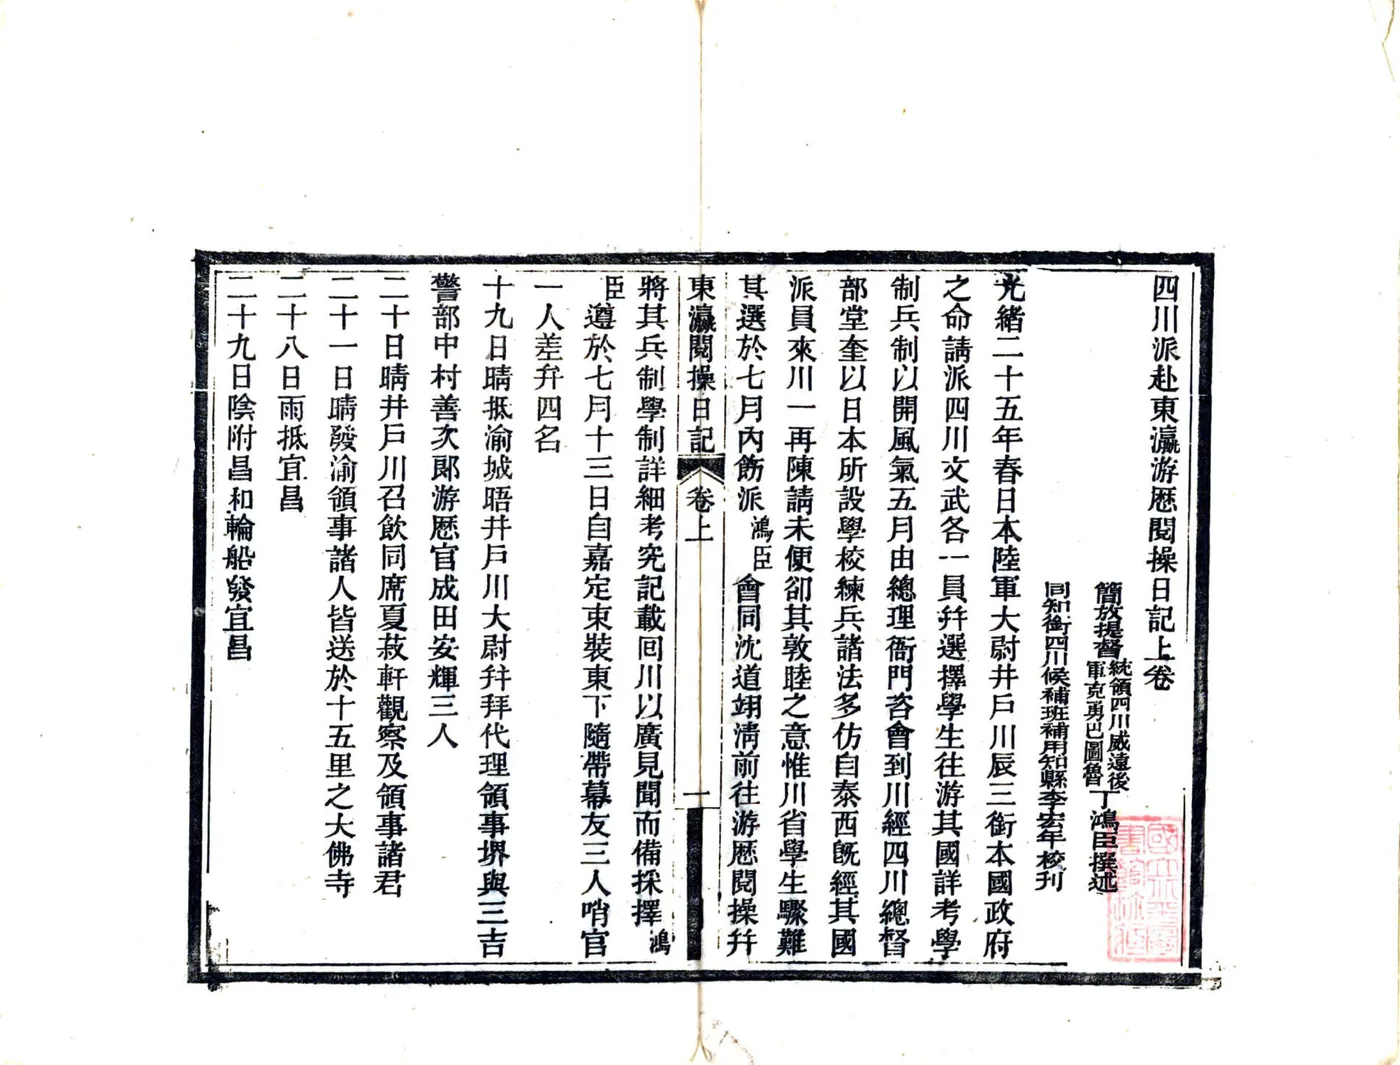 四川派赴東瀛游歷閱操日記上卷
簡放提督統領四川威遠後軍克勇巴圖魯丁鴻臣撰述
同知銜四川候補班補用知縣李宏年校刊
光緒二十五年春日本陸軍大尉井戶川辰三銜本國政府
之命請派四川文武各一員幷選擇學生往游其國詳考學
制兵制以開風氣五月由總理衙門咨會到川經四川總督
部堂奎以日本所設學校練兵諸法多仿自泰西既經其國
派員來川一再陳請未便卻其敦睦之意惟川省學生驟難
其選於七月內飭派鴻臣會同沈道翊清前往游歷閱操幷
東瀛閱操日記 卷上 一
將其兵制學制詳細考究記載回川以廣見聞而備採擇鴻
臣遵於七月十三日自嘉定束裝東下隨帶幕友三人哨官
一人差弁四名
十九日晴抵渝城晤井戶川大尉幷拜代理領事堺與三吉
警部中村善次郎游歷官成田安輝三人
二十日晴井戶川召飲同席夏菽軒觀察及領事諸君
二十一日晴發渝領事諸人皆送於十五里之大佛寺
二十八日雨抵宜昌
二十九日陰附昌和輪船發宜昌